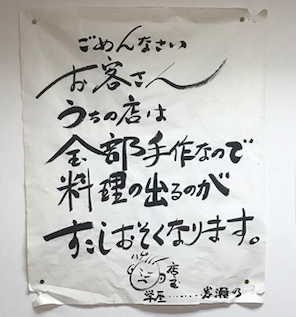 ごめんなさい
お客さん
うちの店は
全部手作なので
料理の出るのが
すこしおそくなります。
店主